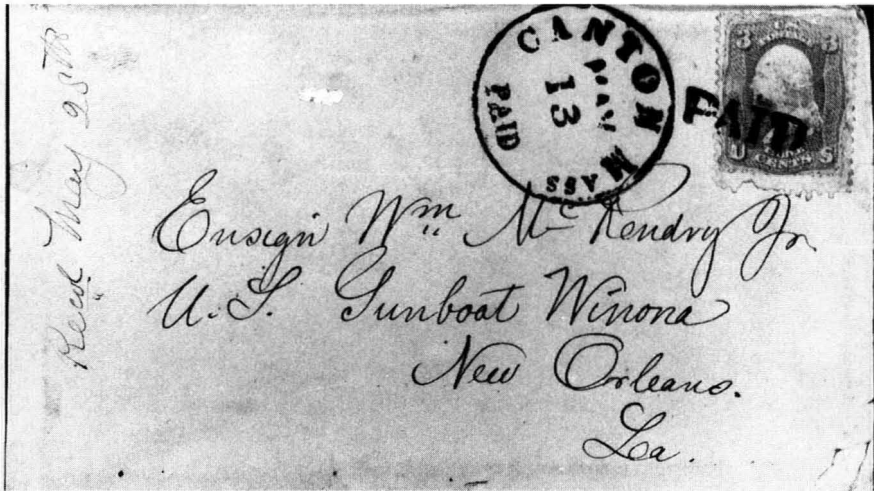 Rec'd May 25th
CANTON MASS
MAY
13
PAID
PAID
3 3
U CENTS S
Ensign Wm McKendry Jr
U.S. Gunboat Winona
New Orleans.
La.